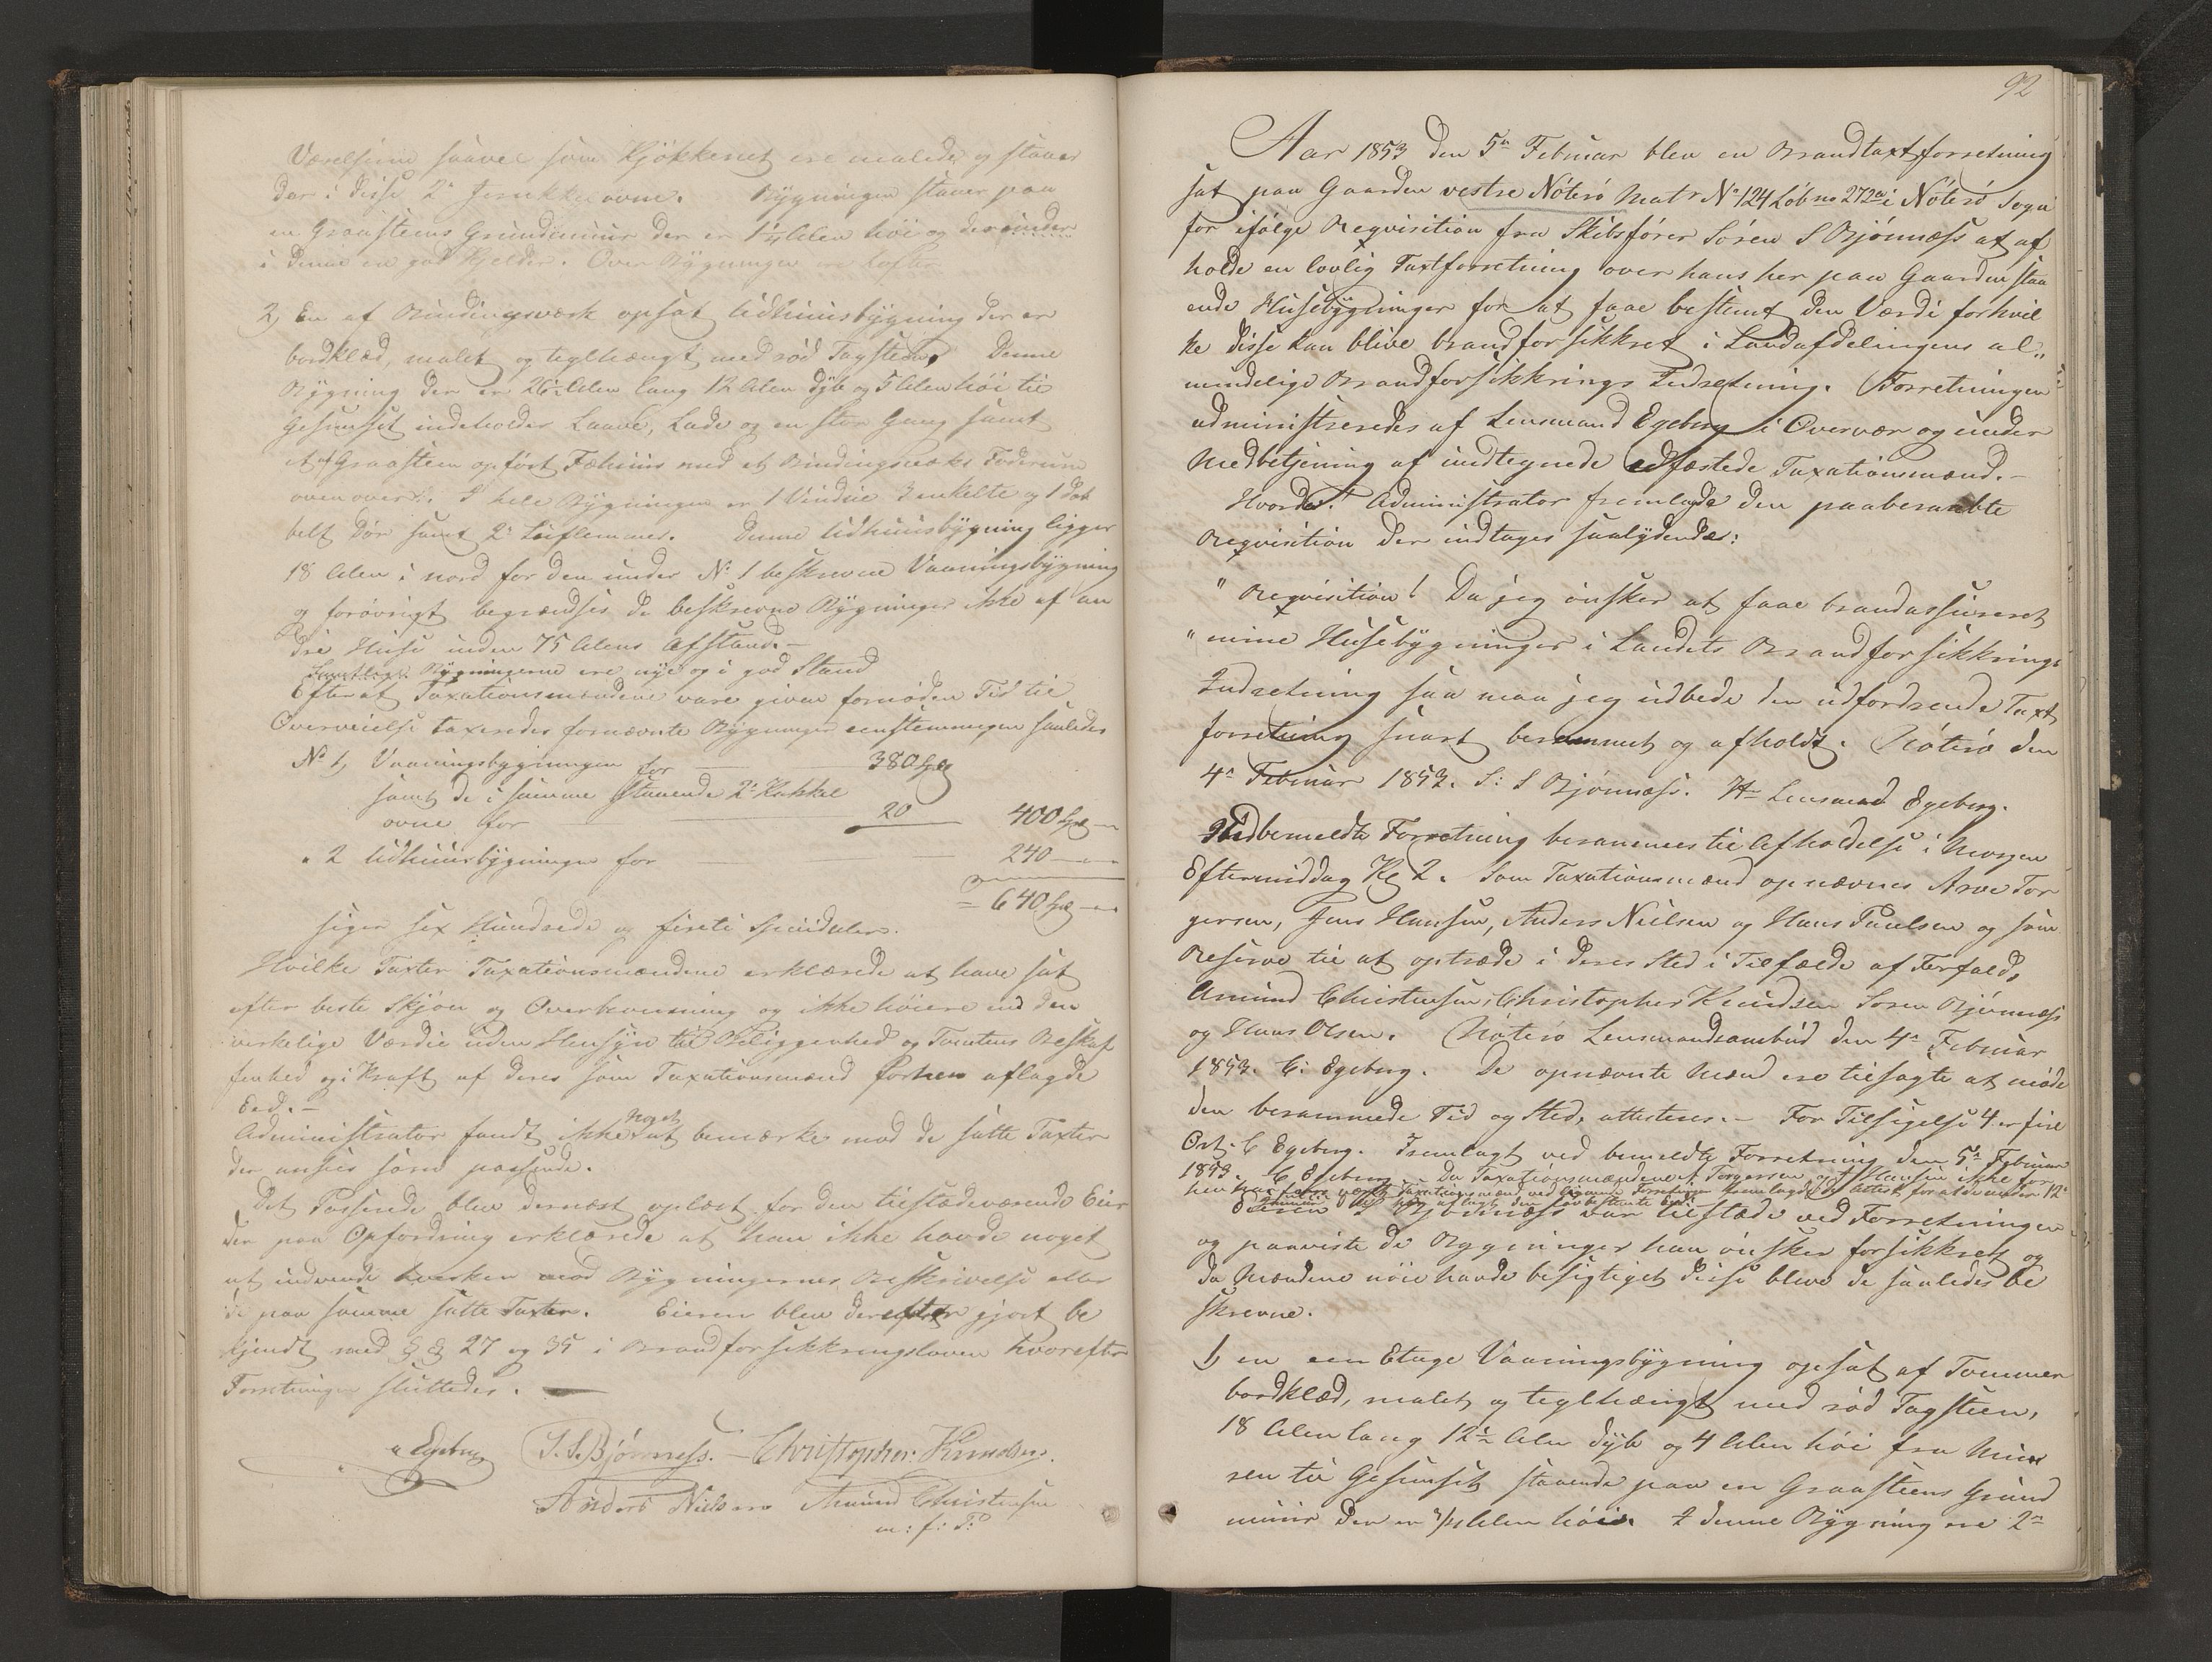 Værelserne saavel som Kjökkenet ere malede og staaer
der i disse 2de Jernkakelovne. Bygningen staaer paa
en Graasteens Grundmuur der er 1¼ Alen höi og derunder
i denne en god Kjelder. Over Bygningen ere Lofter
2, En af Bindingsværk opsat Udhuusbygning der er
bordklæd, malet og teglhængt med röd Tagsteen. Denne
Bygning der er 26½ Alen lang 12 Alen dyb og 5 Alen höi til
Gesimset indeholder Laave, Lade og en stor Gang samt
et af Graasteen opfört Fæhuus med et Bindingsværks Foderum
ovenover. I hele Bygningen er 1 Vindue 3 enkelte og 1 dob
belt Dör samt 2de Luflemmer. Denne Udhuusbygning ligger
18 Alen i nord for den under No 1 beskrevne Vaaningsbygning
og forövrigt begrændses de beskrevne Bygninger ikke af an
dre Huse inden 75 Alens Afstand.-
Samtlige Bygningerne ere nye og i god Stand
Efterat Taxationsmændene vare given fornöden Tid til
Overveielse taxeredes fornævnte Bygninger eenstemmigen saaledes
No 1, Vaaningsbygningen for 380 Spd
samt de i samme staaende 2de Kakkel
ovne for 20 400 Spd
" 2 Udhuusbygningen for 240
= 640 Spd
siger sex Hundrede og fireti Speciedaler.
Hvilke Taxter Taxationsmændene erklærede at have sat
efter beste Skjön og Overbeviisning og ikke höiere end den
virkelige Værdie uden Hensyn til Beliggenhed og Tomtens Beskaf
fenhed og i Kraft af deres som Taxationsmænd forhen aflagde
Eed.-
Administrator fandt ikke noget at bemærke mod de satte Taxter
der ansees som passende.
Det Passerede blev dernæst oplæst for den tilstædeværende Eier
der paa Opfordring erklærede at han ikke havde noget
at indvende hverken mod Bygningernes Beskrivelse eller
de paa samme satte Taxter. Eieren blev derefter gjort be
kjendt med § § 27 og 35 i Brandforsikkringsloven hvorefter
Forretningen sluttedes.
C Egeberg S. S. Bjönness. - Christopher Knudsen.
Anders Nielsen Amund Christensen
m: f: P:
92
Aar 1853 den 5te Februar blev en Brandtaxtforretning
sat paa Gaarden vestre Nöterö Matr No 124 Löbno 272a i Nöterö Sogn
for ifölge Reqvisition fra Skibsförer Sören S Björnness at af
holde en lovlig Taxtforretning over hans her paa Gaarden staa
ende Husebygninger for at faae bestemt den Værdi forhvil
ke disse kan blive brandforsikkret i Landafdelingens al„
mindelige Brandforsikkrings Indretning. Forretningen
administreredes af Lensmand Egeberg i Overvær og under
Medbetjening af undtegnede edfæstede Taxationsmænd.-
Hvorda: Administrator fremlagde den paaberaabte
Reqvisition der indtages saalydende:
" Reqvisition! Da jeg önsker at faae brandassureret
" mine Husebygninger i Landets Brandforsikkrings
Indretning saa maa jeg udbede den udfordrende Taxt
forretning snart berammet og afholdt. Nöterö den
4de Februar 1853. S: S Björnness. Hr Lensmand Egeberg.
Medbemeldte Forretning berammes til Afholdelse i Morgen
Eftermiddag Kl 2. Som Taxationsmænd opnævnes Arve Tor
gersen, Jens Hansen, Anders Nielsen og Hans Paulsen og som
Reserve til at optræde i deres Sted i Tilfælde af Forfald,
Amund Christensen, Christopher Knudsen Soren Björnness
og Hans Olsen. Nöterö Lensmandsombud den 4de Februar
1853. C: Egeberg. De opnævnte Mænd ere tilsagte at möde
den berammede Tid og Sted, attesteres.- For Tilsigelse 4 er fire
Ort. C Egeberg. Fremlagt ved bemeldte Forretning den 5te Februar
1853. C Egeberg. Da Taxationsmændene A Torgersen og J Hansen ikke for
hen har været Taxationsmænd ved lignende Forretninger fremlagdes Attest for at de under 12te
Januar har aflagt den lovbestemte Eed
Eieren S S Björnness var tilstæde ved Forretningen
og paaviste de Bygninger han önsker forsikkret og
da Mændene nöie havde besigtiget disse bleve de saaledes be
skrevne.
1, en een Etage Vaaningsbygning opsat af Tömmer
bordklæd, malet og teglhængt med röd Tagsteen,
18 Alen lang 12½ Alen dyb og 4 Alen höi fra Muu
ren til Gesimset staaende paa en Graasteens Grund
muur der er ¾ Alen höi. I denne Bygning ere 2de